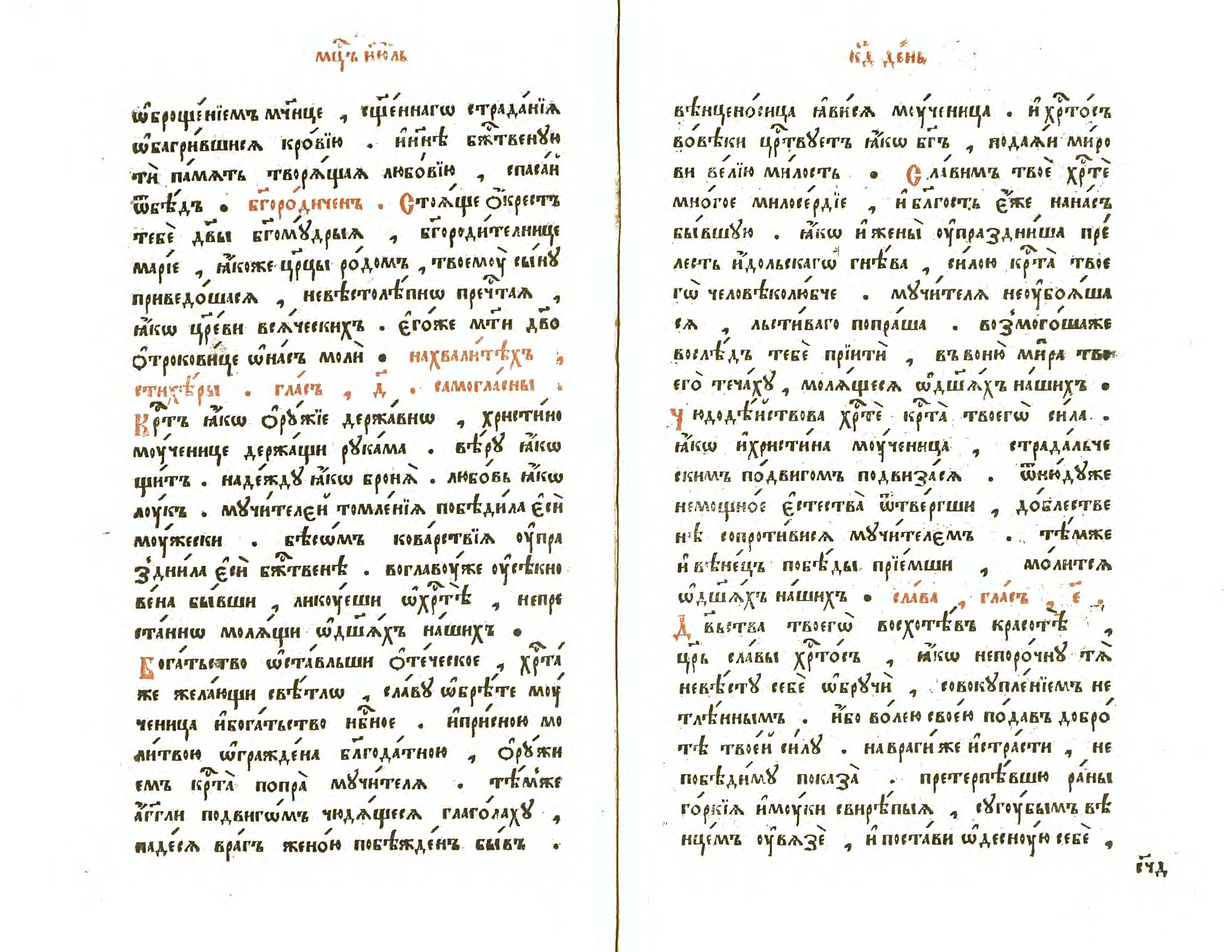 мц҃ъ і҆ю́ль
ѡ҆броще́нїемъ мч҃нце , сщ҃е́ннагѡ страда́нїѧ
ѡ҆багри́вшисѧ кро́вїю . и҆нн҃ѣ бжⷭ҇твеную
тѝ па́мѧть творѧ́щаѧ любо́вїю , спаса́й
ѿбѣ́дъ . бг҃оро́диченъ . Стоѧ́ще ѻ҆́крестъ
тебѐ дв҃ы бг҃омꙋ́дрыѧ , бг҃ороди́телнице
марі́е , ꙗ҆́коже цр҃цы ро́домъ , твоемоу̀ сы́нꙋ
приведо́шасѧ , невѣстолѣ́пнѡ преч҇таѧ ,
ꙗ҆́кѡ цр҃е́ви всѧ́ческихъ . є҆го́же мт҃и дв҃о
ѻ҆трокови́це ѡ҆на́съ молѝ . нахвали́тѣхъ ,
стихѣ́ры . гла́съ , д҃ . самогла́сны .
Крⷭ҇тъ ꙗ҆́кѡ ѻ҆рꙋ́жїе держа́внѡ , христи́но
моу́ченице держа́щи рꙋка́ма . вѣ́рꙋ ꙗ҆́кѡ
щи́тъ . наде́ждꙋ ꙗ҆́кѡ бронѧ̀ . любо́вь ꙗ҆́кѡ
лоу́къ . мꙋчи́телей томле́нїѧ побѣди́ла є҆сѝ
моу́жески . бѣсѡ́мъ кова́рствїѧ оу҆пра
здни́ла є҆сѝ бжⷭ҇твенѣ . воглавоу́же оу҆сѣкно
ве́на бы́вши , ликоу́еши ѡ҆хрⷭ҇тѣ̀ , непре
ста́ннѡ молѧ́щи ѡ҆дш҃ахъ на́шихъ .
Бога́тьство ѡ҆ста́вльши ѻ҆те́ческое , хрⷭ҇та̀
же жела́ющи свѣ́тлѡ , сла́вꙋ ѡ҆брѣ́те моу́
ченица и҆бога́тьство нбⷭ҇ное . и҆при́сною мо
ли́твою ѡ҆гражде́на бл҃года́тною , ѻ҆рꙋ́жи
емъ крⷭ҇та̀ попра̀ мꙋчи́телѧ . тѣ́мже
а҆́гг҃ли по́двигѡмъ чюдѧ́щесѧ глаго́лахꙋ ,
паде́сѧ вра́гъ жено́ю побѣжде́нъ бы́въ .
кд҃ де́нь
вѣнцено́сица ꙗ҆ви́сѧ моу́ченица . и҆ хрⷭ҇то́съ
во́вѣки црⷭ҇твꙋетъ ꙗ҆́кѡ бг҃ъ , подаѧ́и ми́ро
ви ве́лїю ми́лость . Сла́вимъ твоѐ хрⷭ҇тѐ
мно́гое милосе́рдїе , и҆ бл҃гость є҆́же нана́съ
бы́вшую . ꙗ҆́кѡ и҆ же́ны оу҆праздни́ша пре́
лесть и҆́дольскагѡ гнѣ́ва , си́лою крⷭ҇та̀ твое
гѡ̀ человѣколю́бче . мꙋчи́телѧ неоу҆боѧ́ша
сѧ , льсти́ваго попра́ша . возмого́шаже
восле́дъ тебѐ прїитѝ , въ воню̀ ми́ра тво
его̀ теча́хꙋ , молѧ́щесѧ ѡ҆дш҃ахъ на́шихъ .
Чюдодѣ́йствова хрⷭ҇тѐ крⷭ҇та̀ твоегѡ̀ си́ла .
ꙗ҆́кѡ и҆христи́на моу́ченица , страда́льче
скимъ по́двигомъ подвиза́сѧ . ѿню́дꙋже
немощно́е є҆стества̀ ѿве́ргши , до́блестве
нѣ̀ сопроти́висѧ мꙋчи́телемъ . тѣ́мже
и҆ вѣне́цъ побѣ́ды прїе́мши , мо́литсѧ
ѡ҆дш҃ахъ на́шихъ . сла́ва , гла́съ , є҃ .
Дв҃ьства твоегѡ̀ восхотѣ́въ красотѣ̀ ,
цр҃ь сла́вы хрⷭ҇то́съ , ꙗ҆́кѡ непоро́чнꙋ тѧ̀
невѣ́стꙋ себѐ ѡ҆брꙋчѝ , совокꙋпле́нїемъ не
тлѣ́ннымъ . и҆́бо во́лею свое́ю пода́въ добро́
тѣ твое́й си́лꙋ . на враги́ же и҆стра́сти , не
побѣди́мꙋ показа̀ . претерпѣ́вшю ра́ны
го́ркїѧ и҆моу́ки свирѣ́пыѧ , сꙋгоу́бымъ вѣ
нце́мъ оу҆вѧзѐ , и҆ поста́ви ѡ҆десноу́ю себѐ ,
єч҃д